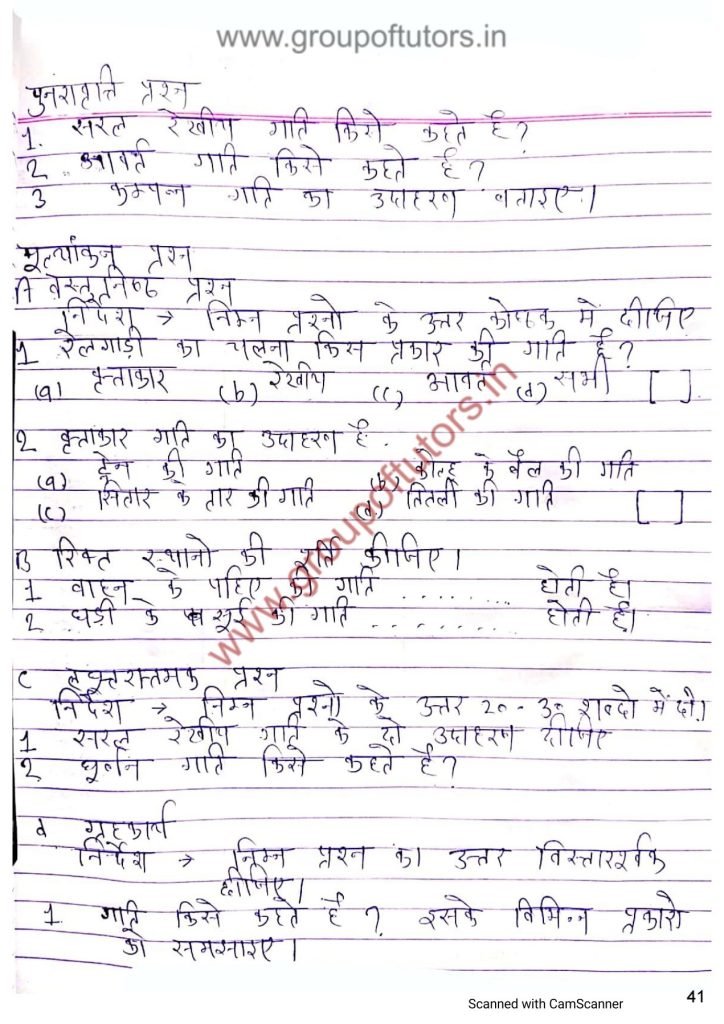 www.groupoftutors.in
पुनरावृत्ति प्रश्न
1. सरल रेखीय गति किसे कहते है?
2. आवर्त गति किसे कहते है?
3 कम्पन्न गति का उदाहरण बताइए।
मूल्यांकन प्रश्न
A वस्तुनिष्ठ प्रश्न
निर्देश → निम्न प्रश्नो के उत्तर कोष्ठक में दीजिए
1 रेलगाड़ी का चलना किस प्रकार की गति है?
(a) वृत्ताकार (b) रेखीय (c) आवर्त (d) सभी [ ]
2 वृत्ताकार गति का उदाहरण है.
(a) ट्रेन की गति (b) कोल्हू के बैल की गति
(c) सितार के तार की गति (d) तितली की गति [ ]
B रिक्त स्थानो की पूर्ति कीजिए।
1 वाहन के पहिए की गति .......... होती है।
2 घड़ी के सूई की गति .......... होती है।
C लघूत्तरात्मक प्रश्न
निर्देश → निम्न प्रश्नो के उत्तर 20-30 शब्दो में दो।
1 सरल रेखीय गति के दो उदाहरण दीजिए
2 घूर्वन गति किसे कहते है?
d गृहकार्य
निर्देश → निम्न प्रश्न का उत्तर विस्तारपूर्वक
दीजिए।
1. गति किसे कहते है? इसके विभिन्न प्रकारो
को समझाइए।
www.groupoftutors.in
Scanned with CamScanner
41